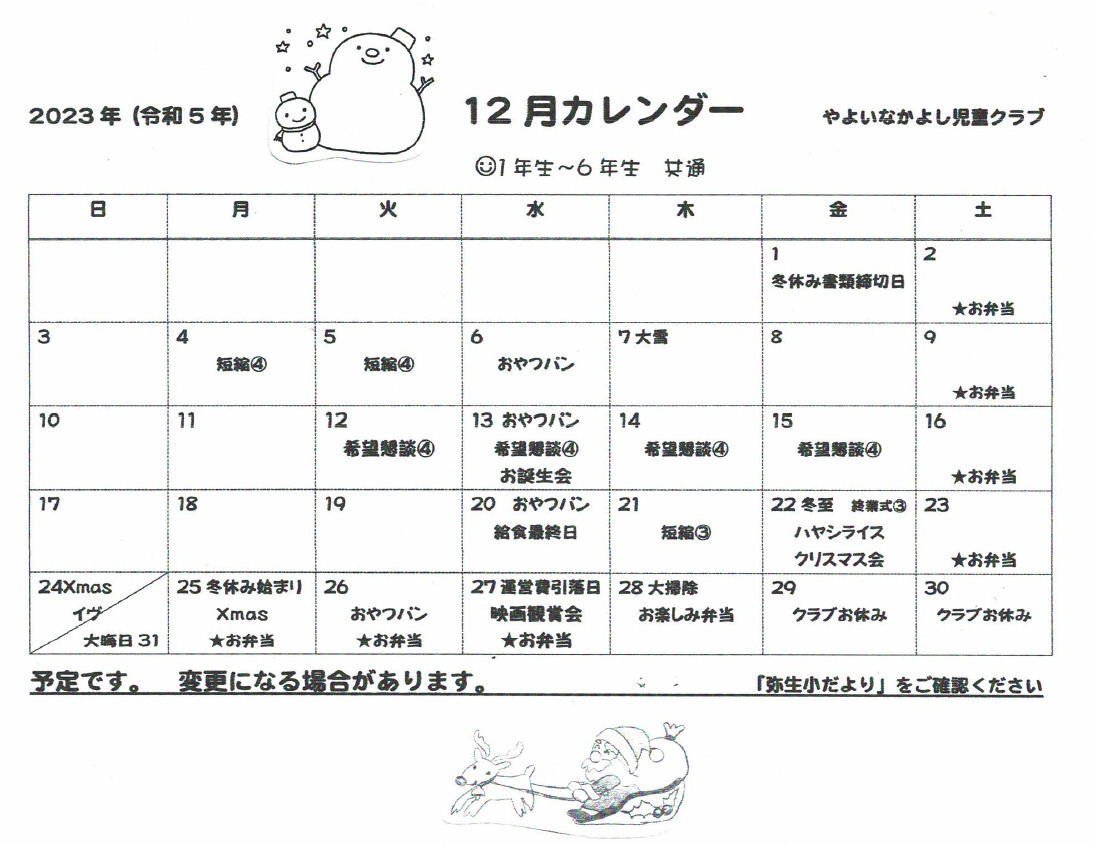 2023年（令和5年）
12月カレンダー
やよいなかよし児童クラブ
☺1年生～6年生　共通
日 月 火 水 木 金 土
1 2
冬休み書類締切日
★お弁当
3 4 5 6 7大雪 8 9
短縮④ 短縮④ おやつパン
★お弁当
10 11 12 13 おやつパン 14 15 16
希望懇談④ 希望懇談④ 希望懇談④ 希望懇談④
お誕生会 ★お弁当
17 18 19 20 おやつパン 21 22冬至 終業式③ 23
給食最終日 短縮③ ハヤシライス
クリスマス会 ★お弁当
24Xmas 25冬休み始まり 26 27運営費引落日 28大掃除 29 30
イヴ Xmas おやつパン 映画観賞会 お楽しみ弁当 クラブお休み クラブお休み
大晦日31 ★お弁当 ★お弁当 ★お弁当
予定です。　変更になる場合があります。
「弥生小だより」をご確認ください